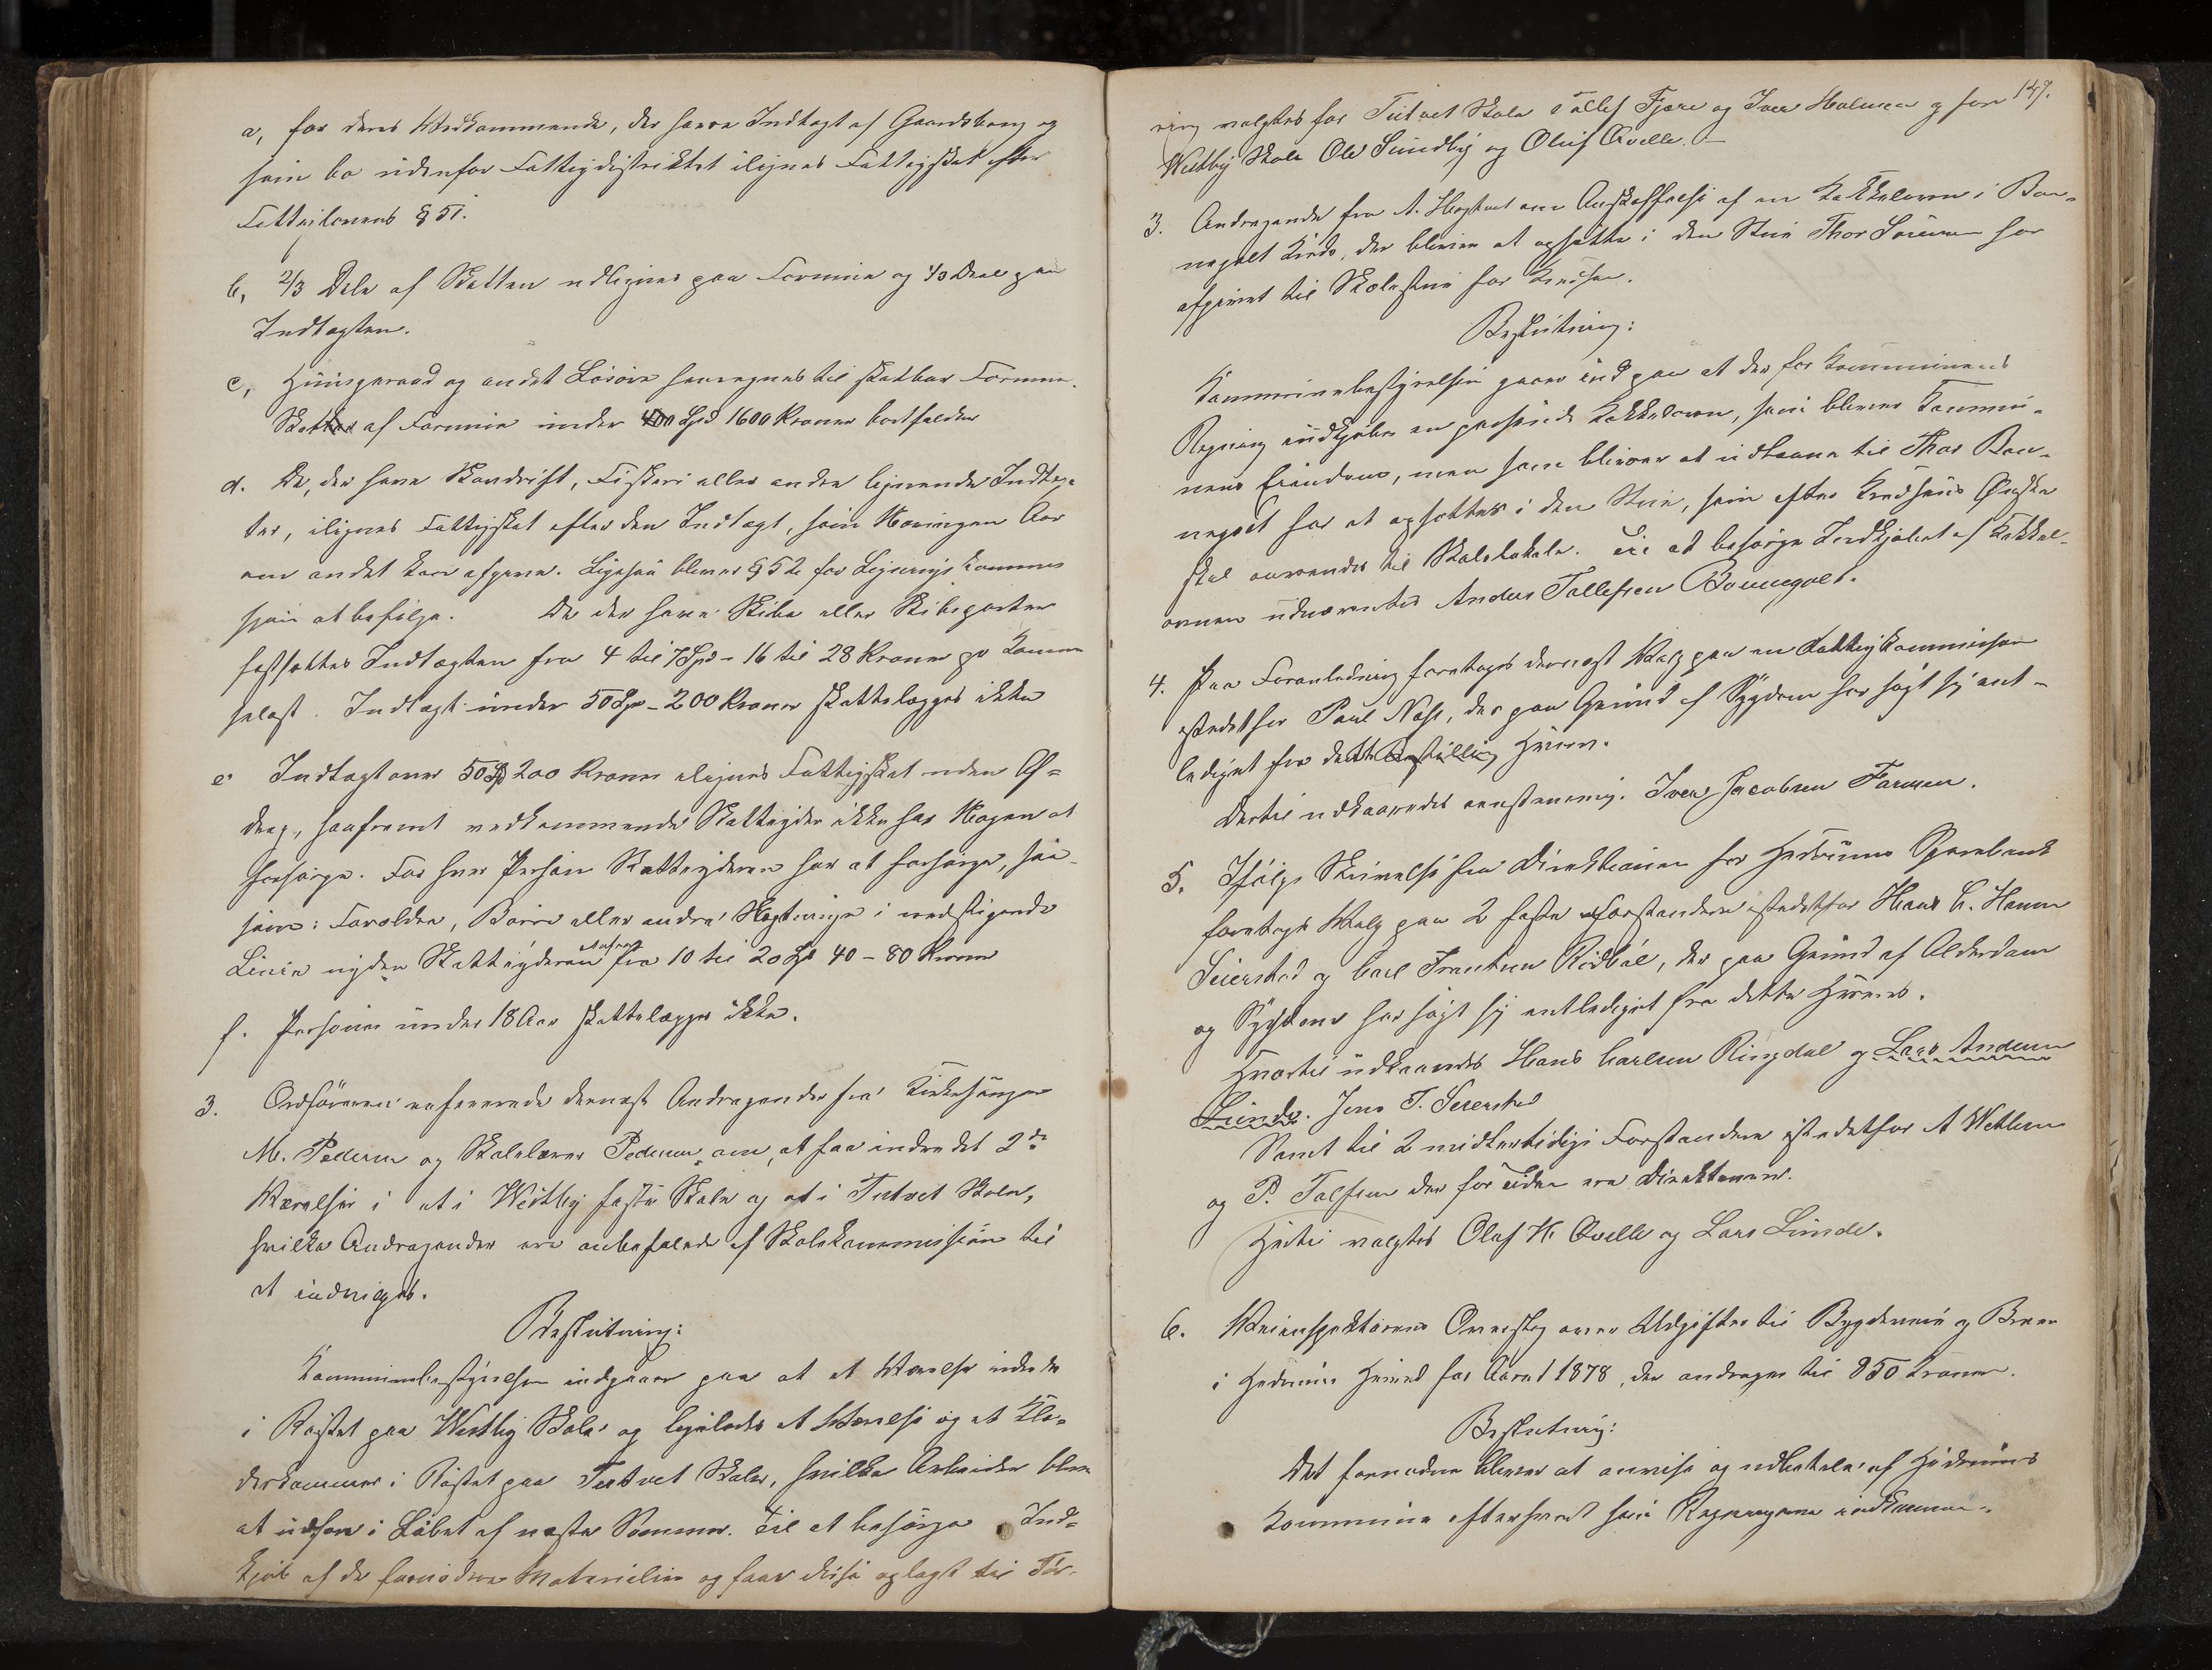 a, for deres Vedkommende, der have Indtægt af Gaardsbrug og
som bo udenfor Fattigdistriktet ilignes Fattigskat efter
Fattiglovens § 51.
b, 2/3 Dele af Skatten udlignes paa Formue og 1/3 Deel paa
Indtægten.
c, Huusgeraad og andet Løsøre henregnes til skatbar Formue.
Skatten af Formue under 400 Spd 1600 Kroner bortfalder
d. De, der have Skovdrift, Fiskeri eller anden lignende Indtæg-
ter, ilignes Fattigskat efter den Indtægt, som Næringen Aar
om andet kan afgive. Ligesaa bliver § 52 for Lignings Kommis
sjon at befølge. De der have Skibe eller Skibsparter
fastsættes Indtægten fra 4 til 7 Spd - 16 til 28 Kroner pr Komme
selæst. Indtægt under 50 Spd - 200 Kroner skattelægges ikke
e. Indtægt over 50 Spd 200 Kroner ilignes Fattigskat uden Af-
drag, saafremt vedkommende Skatteyder ikke har Nogen at
forsørge. For hver Person Skatteyderen har at forsørge, saa-
som: Forældre, Børn eller andre Slægtninge i nedstigende
Linie nyder Skatteyderen Aafdrag fra 10 til 20 Spd 40 - 80 Kroner
f. Personer under 18 Aar skattelægges ikke.
3. Ordføreren refererede dernæst Andragender fra Kirkesanger
M. Pedersen og Skolelærer Pedersen om, at faa indredet 2de
Værelser i et i Westby faste Skole og et i Tutvet Skole,
hvilke Andragender ere anbefalede af Skolekommissionen til
at indvilges.
Beslutning:
Kommunebestyrelsen indgaar paa at et Værelse indredes
i Røstet paa Westby Skole og ligeledes et Værelse og et Klæ-
derkammer i Røstet paa Tutvet Skole, hvilke Arbeider bliver
at udføre i Løbet af næste Sommer. Til at besørge Ind-
kjøb af de fornødne Materialier og faar disse oplagt til Tør-
147.
ring valgtes for Tutvet Skole Tollef Fjære og Iver Holmen og for
Westby Skole Ole Sundby og Oluf Qvelle.
3. Andragende fra A. Hogtvet om Anskaffelse af en Kakkelovn i Bon-
negolt Kreds, der bliver at opsætte i den Stue Thor Sørensen har
afgivet til Skolestue for Kredsen.
Beslutning:
Kommunebestyrelsen gaar ind paa at der for Kommunens
Regning indkjøbes en passende Kakkelovn, som bliver Kommu-
nens Eiendom, men som bliver at udlaane til Thor Bon-
negolt for at opsættes i den Stue, som efter Kredsens Ønske
skal anvendes til Skolelokale. Til at besørge Indkjøbet af Kakkel-
ovnen udnævntes Anders Tollefsen Bonnegolt.
4. Paa Foranledning foretoges dernæst Valg paa en Fattigkommissær
istedetfor Paul Næss, der paa Grund af Sygdom har søgt sig ent-
lediget fra dette Bestilling Hverv.
Dertil udkaaredes eenstemmig. Iver Jacobsen Farmen.
5. Ifølge Skrivelse fra Direktionen for Hedrums Sparebank
foretoges Valg paa 2 faste Forstandere istedetfor Hans C. Hamre
Seierstad og Carl Frantzen Rødbøl, der paa Grund af Alderdom
og Sygdom har søgt sig entlediget fra dette Hverv.
Hvortil udkaaredes Hans Carlsen Ringdal og Lars Andersen
Lunde. Jens T. Seierstad
Samt til 2 midlertidige Forstandere istedetfor A Wetlesen
og P. Tolfsen der for Tiden ere Direktører.
Hertil valgtes Olaf H. Qvelle og Lars Lunde.
6. Veiinspektørens Overslag over Udgifter til Bygdeveie og Broer
i Hedrum Herred for Aaret 1878, der andrager til 850 Kroner.
Beslutning:
Det fornødne bliver at anvise og udbetale af Hedrums
Kommune efterhvert som Regningerne indkomme-